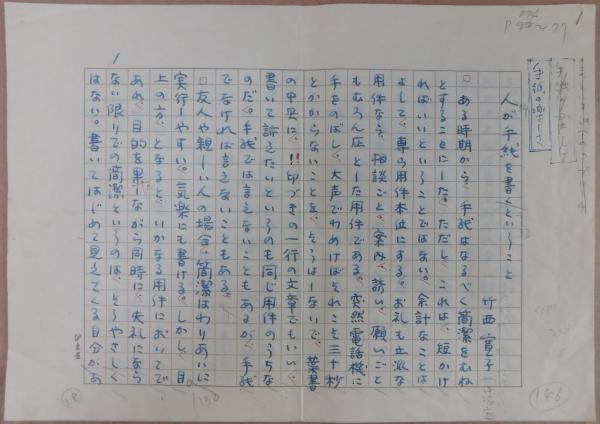 手紙の楽しさ
人が手紙を書くということ
竹西寛子
ある時期から、手紙はなるべく簡潔をむね
とすることにした。ただし、これは、短かけ
ればいいということではない。余計なことは
よして、専ら用件本位にする。お礼も立派な
用件なら、相談ごと、案内、誘い、願いごと
もむろん歴とした用件である。突然電話機に
手をのばし、大声でわめけばそれこそ三十秒
とかからないことを、そうはしないで、葉書
の中央に、!!印づきの一行の文章でもいい、
書いて訴えたいというのも同じ用件のうちな
のだ。手紙では言えないこともあるが、手紙
でなければ言えないこともある。
友人や親しい人の場合、簡潔はわりあいに
実行しやすい。気楽にも書ける。しかし、目
上の方、となると、いかなる用件においてで
あれ、目的を果しながら同時に、失礼になら
ない限りでの簡潔というのは、そうやさしく
はない。書いてはじめて見えてくる自分があ
146
18